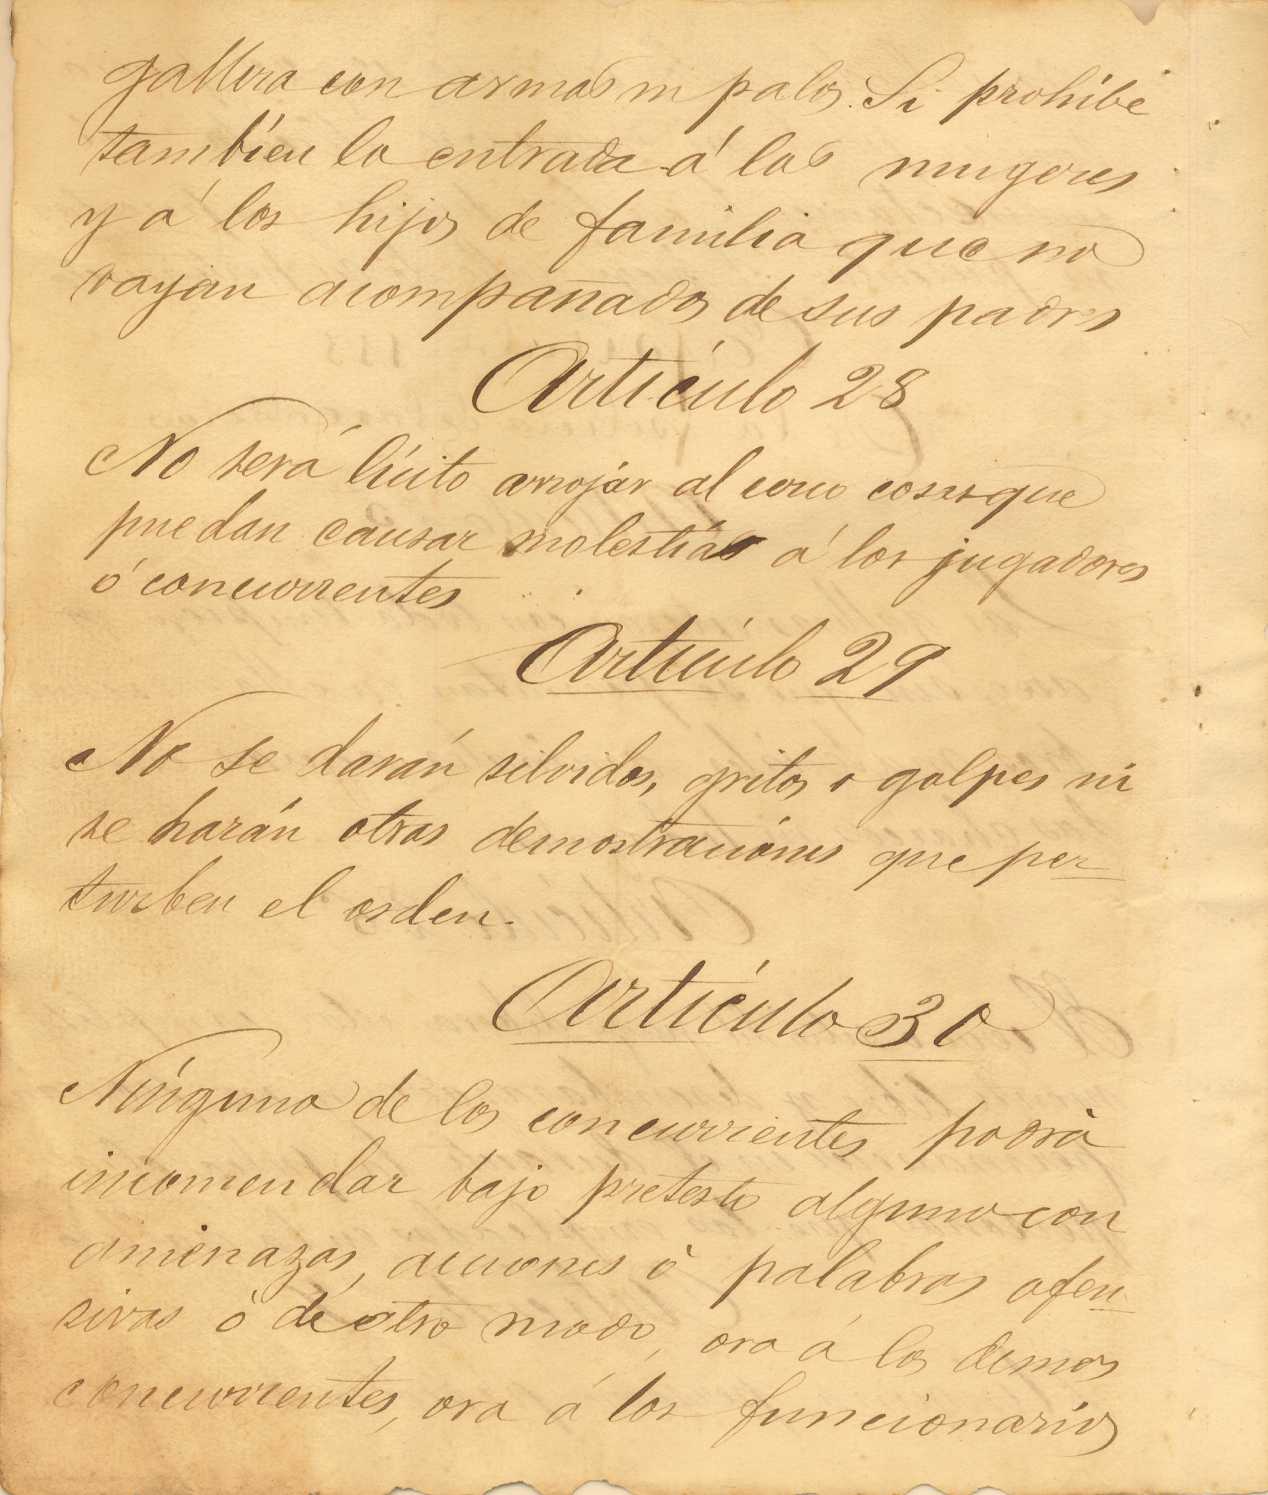 gallera con armas ni palos. Se prohibe
tambien la entrada á las mugeres
y á los hijos de familia que no
vayan acompañados de sus padres
Artículo 28
No será lícito arrojar al circo cosas que
puedan causar molestias á los jugadores
ó concurrentes
Artículo 29
No se darán silvidos, gritos o golpes ni
se harán otras demostraciónes que per
turben el orden.
Artículo 30
Ninguno de los concurrentes podrá
incomendar bajo pretesto alguno con
amenazas, acciones ó palabras ofen
sivas ó de otro modo, ora á los demas
concurrentes, ora á los funcionarios